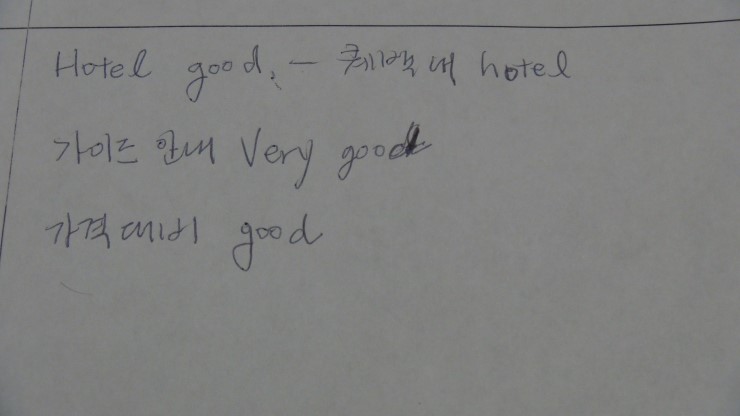 Hotel good. - 쾌백내 hotel
가이드 안내 Very good
가격대비 good